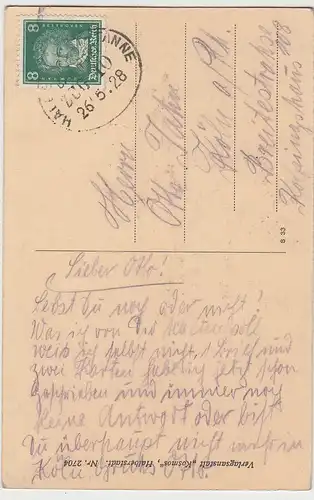 8 8
Deutsches Reich
HAL ANNE
26·5·28
Herrn
Otto
Köln a Rh.
Breitestrasse
108
B 33
Lieber Otto!
Lebst Du noch oder nicht?
Was ich von Dir soll
weiß ich selbst nicht, 1 Brief und
zwei Karten habe ich jetzt schon
geschrieben und immer noch
keine Antwort oder bist
Du überhaupt nicht mehr in
Köln. Gruß
Verlagsanstalt „Kosmos", Halberstadt. Nr. 2704